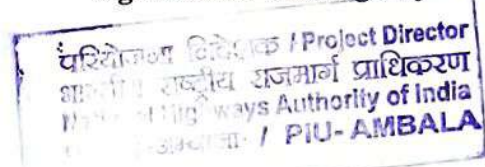 परियोजना निदेशक / Project Director
राष्ट्रीय राजमार्ग प्राधिकरण
ways Authority of India
/ PIU-AMBALA